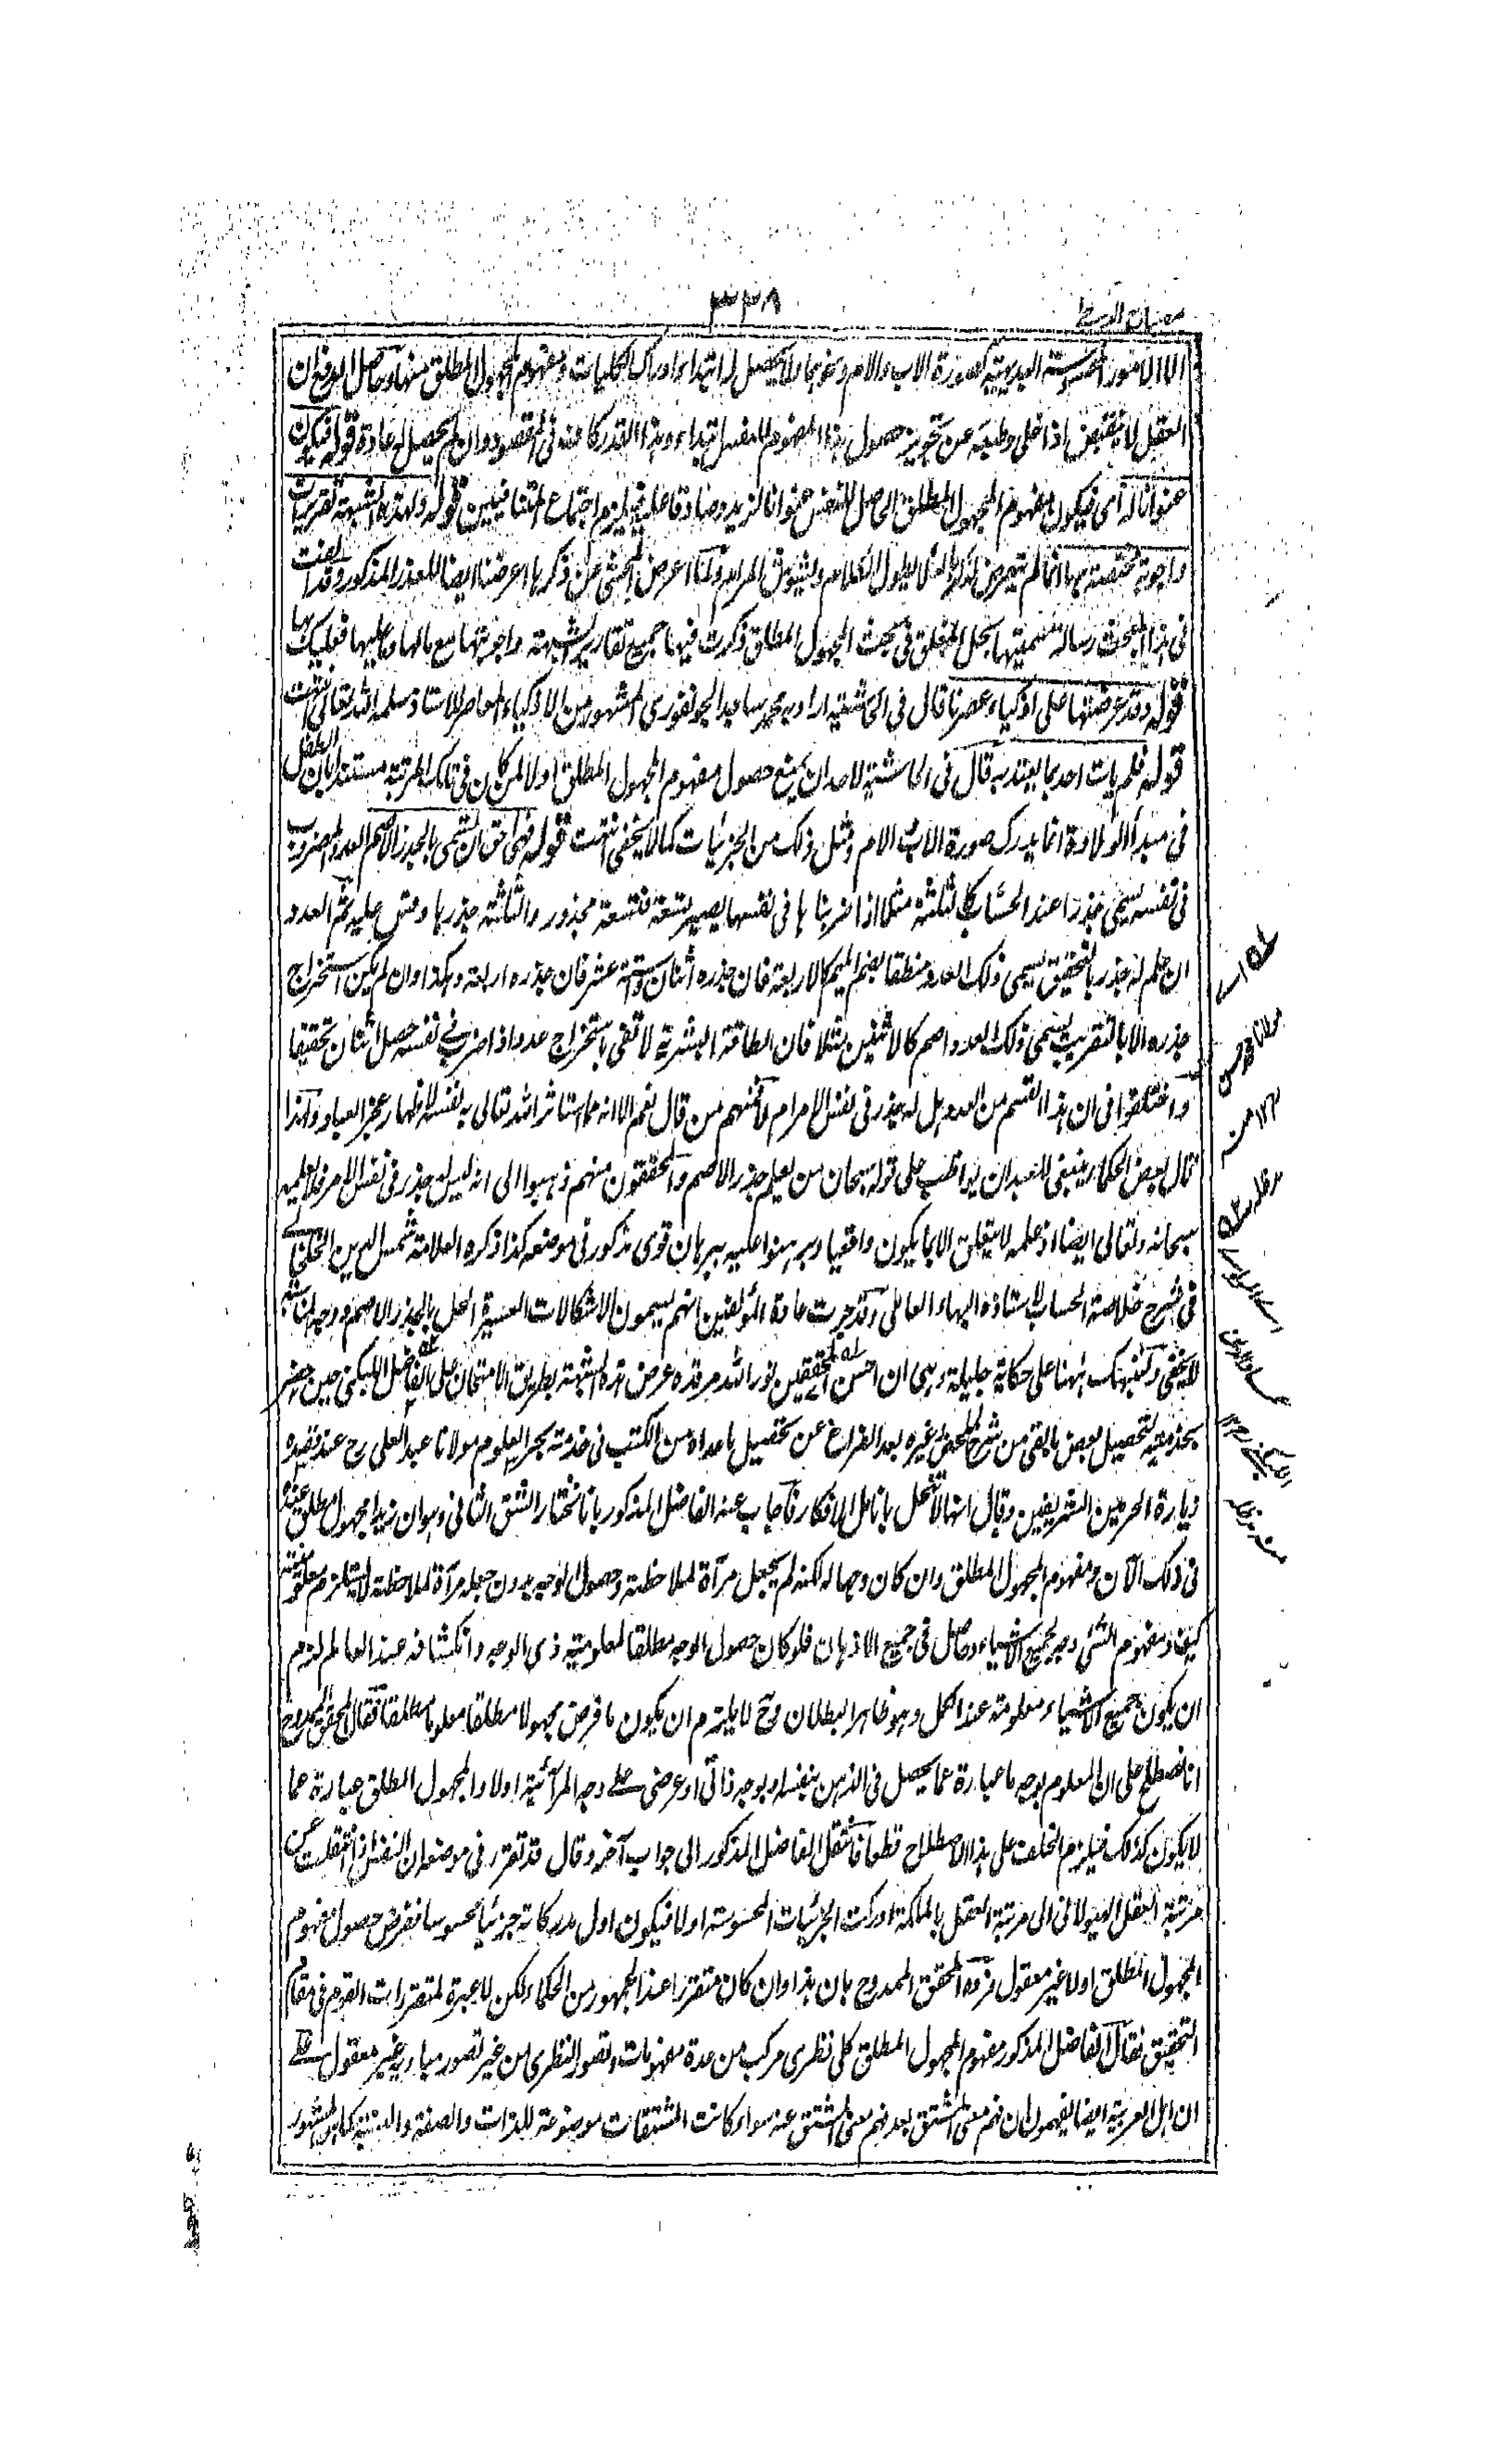 ٣٣٨
الا الامور المحسوسة البديهية كصورة الاب والام ونحوهما ولا يحصل له ابتداء ادراك الكليات ومفهوم المجهول المطلق منها وحاصل الدفع ان
العقل لا ينقبض اذا خلى وطبعه عن تجويز حصول هذا المفهوم للنفس ابتداء وهذا القدر كاف فى المقصود وان لم يحصل له عادة قوله فيكون
عنوانا له اى فيكون مفهوم المجهول المطلق الحاصل للنفس عنوانا لزيد وصادقا عليه فيلزم اجتماع المتنافيين قوله ولهذه الشبهة تقريرات
واجوبة مختصة بها انما لم يتعرض لذكرها لئلا يطول الكلام ويشوش المرام ولما اعرض المحشى عن ذكرها اعرضنا ايضا للعذر المذكور وقد الفت
فى هذا المبحث رسالة سميتها بحل المغلق فى بحث المجهول المطلق ذكرت فيها جميع تقارير الشبهة واجوبتها مع مالها وما عليها فعليك بها
قوله وقد عرضتها على اذكياء عصرنا قال فى الحاشية اراد به محمد ساجد الجونفورى المشهور من الاذكياء المعاصر للاستاذ سلمه الله تعالى انتهت
قوله فلم يات احد بما يعتد به قال فى الحاشية لاحد ان يمنع حصول مفهوم المجهول المطلق اولا لمن كان فى تلك المرتبة مستندا بان الطفل
فى مبدأ الولادة انما يدرك صورة الاب والام ومثل ذلك من الجزئيات كما لا يخفى انتهت قوله فهى احق ان تسمى بالجذر الاصم العدد المضروب
فى نفسه يسمى جذرا عند الحساب كالثلثة مثلا اذا ضربناها فى نفسها يصير تسعة فتسعة مجذور والثلثة جذرها وقس عليه ثم العدد
ان علم له جذر بالتحقيق يسمى ذلك العدد منطقا بضم الميم كالاربعة فان جذره اثنان وستة عشر فان جذره اربعة وهكذا وان لم يمكن استخراج
جذره الا بالتقريب يسمى ذلك العدد اصم كالاثنين مثلا فان الطاقة البشرية لا تفى باستخراج عدد اذا ضرب فى نفسه حصل اثنان تحقيقا
واختلفوا فى ان هذا القسم من العدد هل له جذر فى نفس الامر ام لا فمنهم من قال نعم الا انه مما استاثر الله تعالى به نفسه لاظهار عجز العباد ولهذا
قال بعض الحكماء ينبغى للعبد ان يواظب على قوله سبحان من يعلم جذر الاصم والمحققون منهم ذهبوا الى انه ليس له جذر فى نفس الامر فلا يعلمه
سبحانه وتعالى ايضا اذ علمه لا يتعلق الا بما يكون واقعيا وبرهنوا عليه ببرهان قوى مذكور فى موضعه كذا ذكره العلامة شمس الدين الخلخالى
فى شرح خلاصة الحساب لاستاذه البهاء العاملى وقد جرت عادة المؤلفين انهم يسمون الاشكالات العسيرة الحل بالجذر الاصم ووجه المناسبة
لا يخفى ولننبهك ههنا على حكاية جليلة وهى ان احسن المحققين نور الله مرقده عرض هذه الشبهة بطريق الامتحان على الفاضل اللبكنى حين حضر
بخدمته لتحصيل بعض ما بقى من شرح الملخص وغيره بعد الفراغ عن تحصيل ما عداه من الكتب فى خدمة بحر العلوم مولانا عبد العلى رح عند قصده
زيارة الحرمين الشريفين وقال انها لا تنحل بانامل الافكار فاجاب عنه الفاضل المذكور بانا نختار الشق الثانى وهو ان زيدا مجهول مطلق عنده
فى ذلك الآن ومفهوم المجهول المطلق وان كان وجها له لكنه لم يجعل مرآة لملاحظته وحصول الوجه بدون جعله مرآة لملاحظته لا يستلزم معلوميته
كيف ومفهوم الشئ وجه لجميع الاشياء وحاصل فى جميع الاذهان فلو كان حصول الوجه مطلقا لمعلومية ذى الوجه وانكشافه عند العالم لزم
ان يكون جميع الاشياء معلومة عند الكل وهو ظاهر البطلان وح لا يلزم ان يكون ما فرض مجهولا مطلقا معلوما مطلقا فقال المحقق الممدوح
انا نصطلح على ان المعلوم بوجه ما عبارة عما يحصل فى الذهن بنفسه او بوجه ذاتى او عرضى على وجه المرآتية اولا والمجهول المطلق عبارة عما
لا يكون كذلك فيلزم الخلف على هذا الاصطلاح قطعا فانتقل الفاضل المذكور الى جواب آخر وقال قد تقرر فى موضعه ان النفس اذا انتقلت عن
مرتبة العقل الهيولانى الى مرتبة العقل بالملكة ادركت الجزئيات المحسوسة اولا فيكون اول مدركاته جزئيا محسوسا فنفرض حصول مفهوم
المجهول المطلق اولا غير معقول فرده المحقق الممدوح بان هذا وان كان متقررا عند الجمهور من الحكماء لكن لا عبرة لمتقررات القوم فى مقام
التحقيق فقال الفاضل المذكور مفهوم المجهول المطلق كلى نظرى مركب من عدة مفهومات وتصور النظرى من غير تصور مباديه غير معقول على
ان اهل العربية ايضا يفهمون ان فهم معنى المشتق بعد فهم معنى المشتق عنه سواء كانت المشتقات موضوعة للذات والصفة والنسبة كما هو المشهور